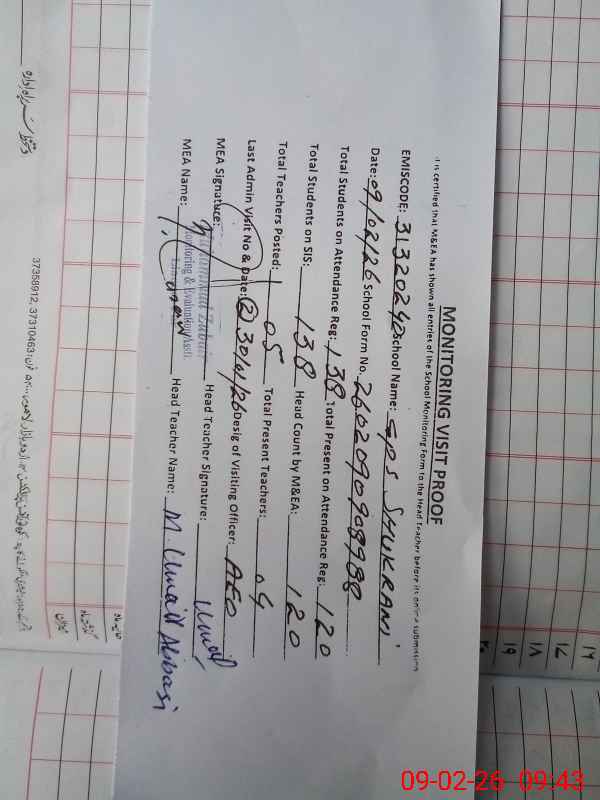 MONITORING VISIT PROOF
It is certified that M&EA has shown all entries of the School Monitoring Form to the Head Teacher before its online submission
EMISCODE: 31320240 School Name: GPS SHUKRANI
Date: 09/02/26 School Form No. 260209090898
Total Students on Attendance Reg: 138 Total Present on Attendance Reg: 120
Total Students on SIS: 138 Head Count by M&EA: 120
Total Teachers Posted: 05 Total Present Teachers: 04
Last Admin Visit No & Date: 2 30/01/26 Desig of Visiting Officer: AEO
MEA Signature: Head Teacher Signature: Umair
Muhammad Zubair
Monitoring & Evaluation Asstt.
MEA Name: Head Teacher Name: M. Umair Abbasi
37358912, 37310463
۱۷
۱۸
۱۹
۲۰
09-02-26 09:43